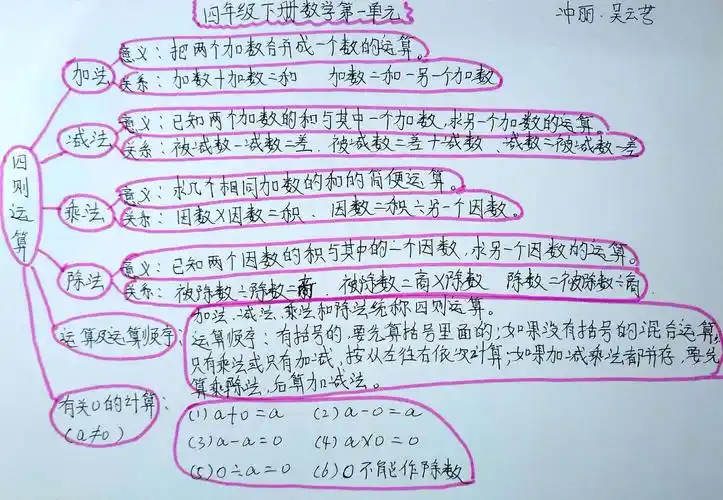 四年级下册数学第一单元
冲丽·吴云芸
四则运算
加法
意义：把两个加数合并成一个数的运算。
关系：加数+加数=和 加数=和-另一个加数
减法
意义：已知两个加数的和与其中一个加数,求另一个加数的运算。
关系：被减数-减数=差. 被减数=差+减数、减数=被减数-差
乘法
意义：求几个相同加数的和的简便运算。
关系：因数×因数=积. 因数=积÷另一个因数。
除法
意义：已知两个因数的积与其中的一个因数,求另一个因数的运算。
关系：被除数÷除数=商. 被除数=商×除数 除数=被除数÷商
运算及运算顺序：
加法、减法、乘法和除法统称四则运算。
运算顺序：有括号的,要先算括号里面的;如果没有括号的混合运算,
只有乘法或只有加减,按从左往右依次计算;如果加减乘法都并存,要先
算乘除法,后算加减法。
有关0的计算：
(a≠0)
(1) a+0=a (2) a-0=a
(3) a-a=0 (4) a×0=0
(5) 0÷a=0 (6) 0不能作除数